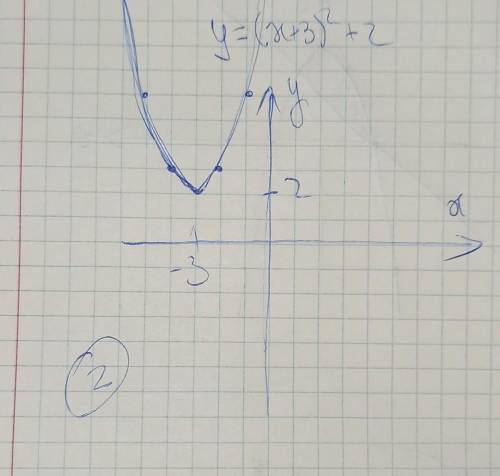 y=(x+3)²+2
y
2
x
-3
2